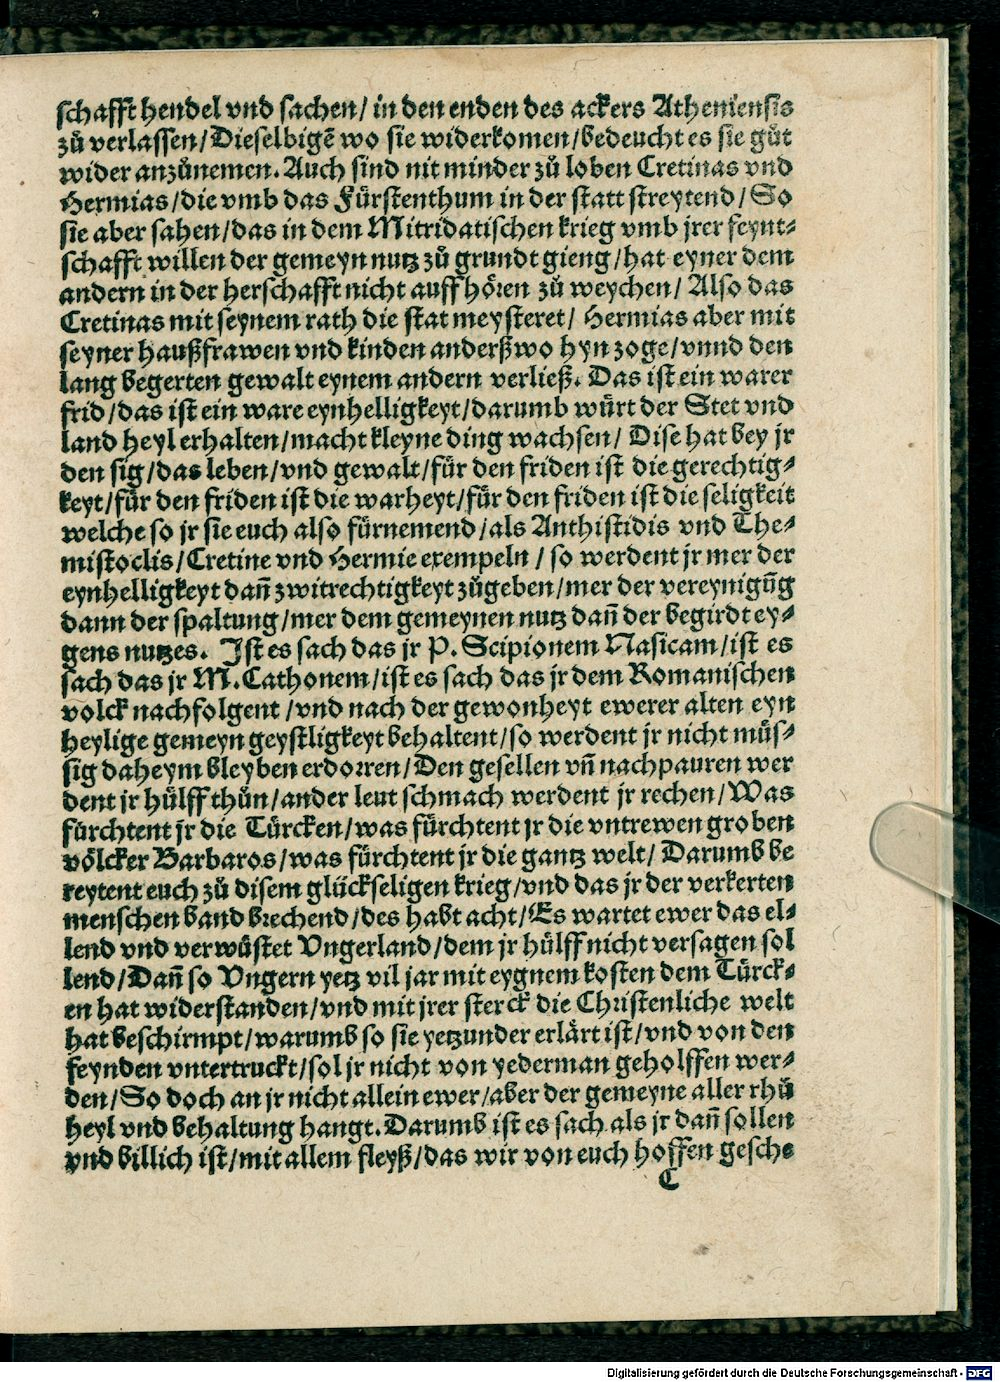 schafft hendel vnd sachen/ in den enden des ackers Atheniensis
zů verlassen/Dieselbigẽ wo sie widerkomen/bedeucht es sie gůt
wider anzůnemen. Auch sind nit minder zů loben Cretinas vnd
Hermias/die vmb das Fürstenthum in der statt streytend/So
sie aber sahen/das in dem Mitridatischen krieg vmb jrer feynt⸗
schafft willen der gemeyn nutz zů grundt gieng/hat eyner dem
andern in der herschafft nicht auff hören zů weychen/ Also das
Cretinas mit seynem rath die stat meysteret/ Hermias aber mit
seyner haußfrawen vnd kinden anderßwo hyn zoge/vnnd den
lang begerten gewalt eynem andern verließ. Das ist ein warer
frid/das ist ein ware eynhelligkeyt/darumb würt der Stet vnd
land heyl erhalten/macht kleyne ding wachsen/ Dise hat bey jr
den sig/das leben/vnd gewalt/für den friden ist die gerechtig⸗
keyt/für den friden ist die warheyt/für den friden ist die seligkeit
welche so jr sie euch also fürnemend/als Anthistidis vnd The⸗
mistoclis/Cretine vnd Hermie exempeln / so werdent jr mer der
eynhelligkeyt dañ zwitrechtigkeyt zůgeben/mer der vereynigũg
dann der spaltung/mer dem gemeynen nutz dañ der begirdt ey⸗
gens nutzes. Ist es sach das jr P. Scipionem Nasicam/ist es
sach das jr M. Cathonem/ist es sach das jr dem Romanischen
volck nachfolgent /vnd nach der gewonheyt ewerer alten eyn
heylige gemeyn geystligkeyt behaltent/so werdent jr nicht müs⸗
sig daheym bleyben erdorren/Den gesellen vñ nachpauren wer
dent jr hülff thůn/ander leut schmach werdent jr rechen/Was
fürchtent jr die Türcken/was fürchtent jr die vntrewen groben
völcker Barbaros/was fürchtent jr die gantz welt/ Darumb be
reytent euch zů disem glückseligen krieg/vnd das jr der verkerten
menschen band brechend/des habt acht/Es wartet ewer das el⸗
lend vnd verwüstet Vngerland/dem jr hülff nicht versagen sol
lend/Dañ so Vngern yetz vil jar mit eygnem kosten dem Türck⸗
en hat widerstanden/vnd mit jrer sterck die Christenliche welt
hat beschirmpt/warumb so sie yetzunder erlärt ist/vnd von den
feynden vntertruckt/sol jr nicht von yederman geholffen wer⸗
den/So doch an jr nicht allein ewer/aber der gemeyne aller rhů
heyl vnd behaltung hangt. Darumb ist es sach als jr dañ sollen
vnd billich ist/mit allem fleyß/das wir von euch hoffen gesche
C
Digitalisierung gefördert durch die Deutsche Forschungsgemeinschaft - DFG